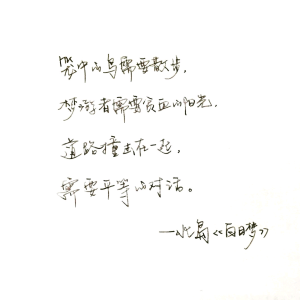 哭中的鸟需要散步,
梦游者需要贫血的阳光,
道路撞击在一起,
需要平等的对话。
—北岛《白日梦》